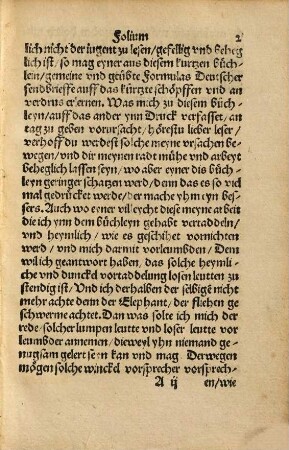 Folium 2
lich nicht der iugent zu lesen/gefellig vnd beheg
lich ist/ so mag eyner aus diesem kurtzen büch
lein/gemeine vnd geübte Formulas Deutscher
sendbrieffe auff das kürtzte schöpffen vnd an
verdrus erlernen. Was mich zu diesem büch-
leyn/auff das ander ynn Druck verfasset/ an
tag zu geben vorursacht/ hörestu lieber leser/
verhoff du werdest solche meyne vrsachen be-
wegen/vnd dir meynen radt mühe vnd arbeyt
beheglich lassen seyn/ wo aber eyner dis büch
leyn geringer schatzen werd/denn das es so viel
mal gedrückt werde/ der mache yhm eyn bes-
sers. Auch wo eyner villeycht diese meyne arbeit
die ich ynn dem büchleyn gehabt vertaddeln/
vnd heymlich/ wie es geschihet vornichten
werd/ vnd mich darmit vorleumbden/ Dem
wil ich geantwort haben/ das solche heymli-
che vnd dunckel vortaddelung losen leutten zu
stendig ist/ Vnd ich derhalben der selbige nicht
mehr achte denn der Elephant/ der fliehen ge
schwerme achtet. Dan was solte ich mich der
rede/solcher lumpen leutte vnd loser leutte vor
leumbder annemen/ dieweyl yhn niemand ge-
nugsam gelert seen kan vnd mag. Derwegen
mögen solche winckel vorsprecher vorsprech-
A ij en/wie